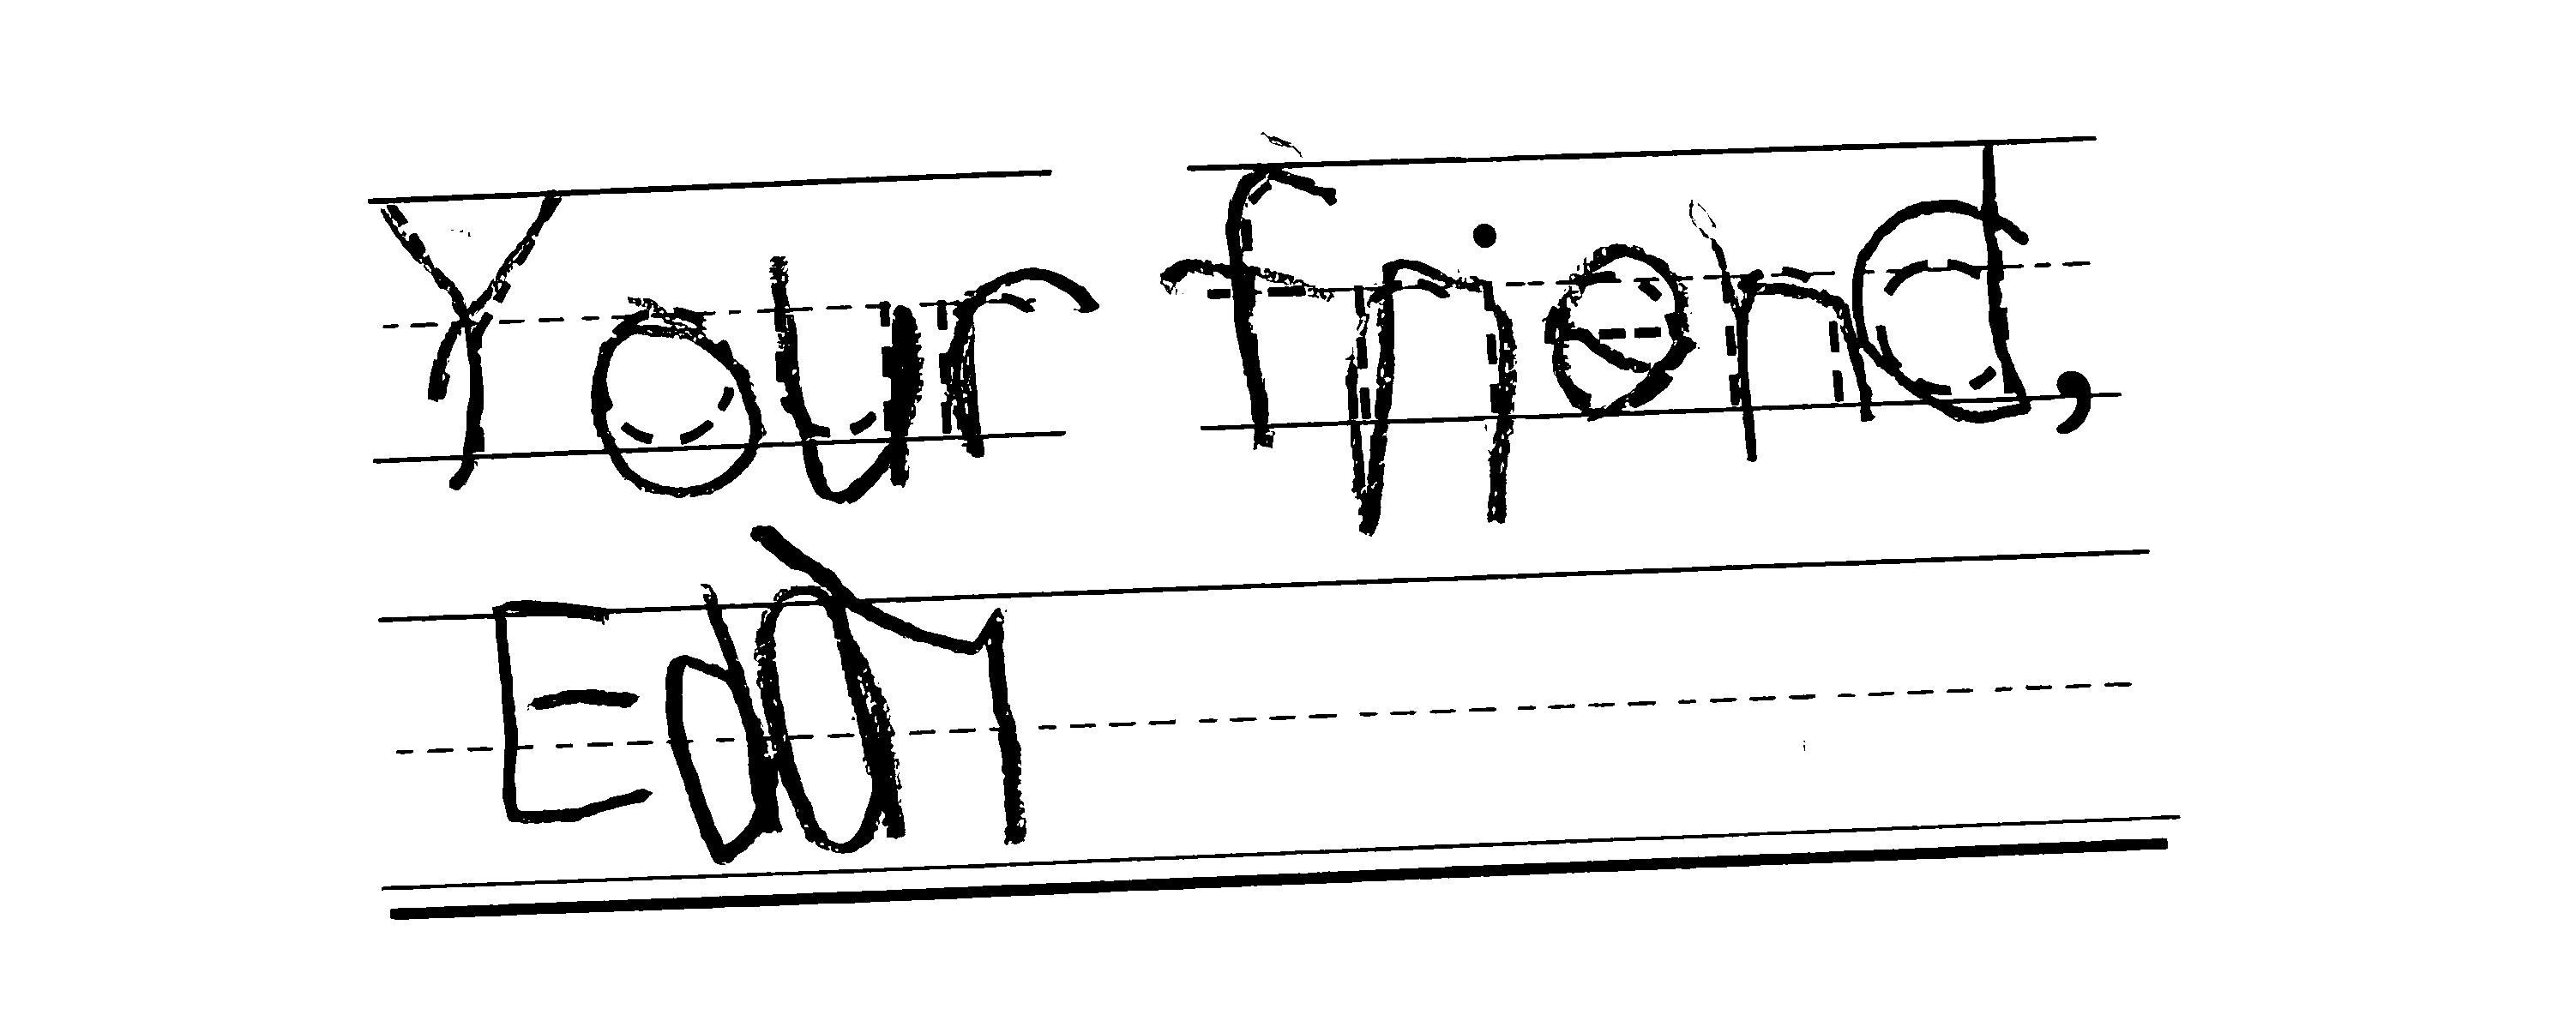 Your friend,
Edan